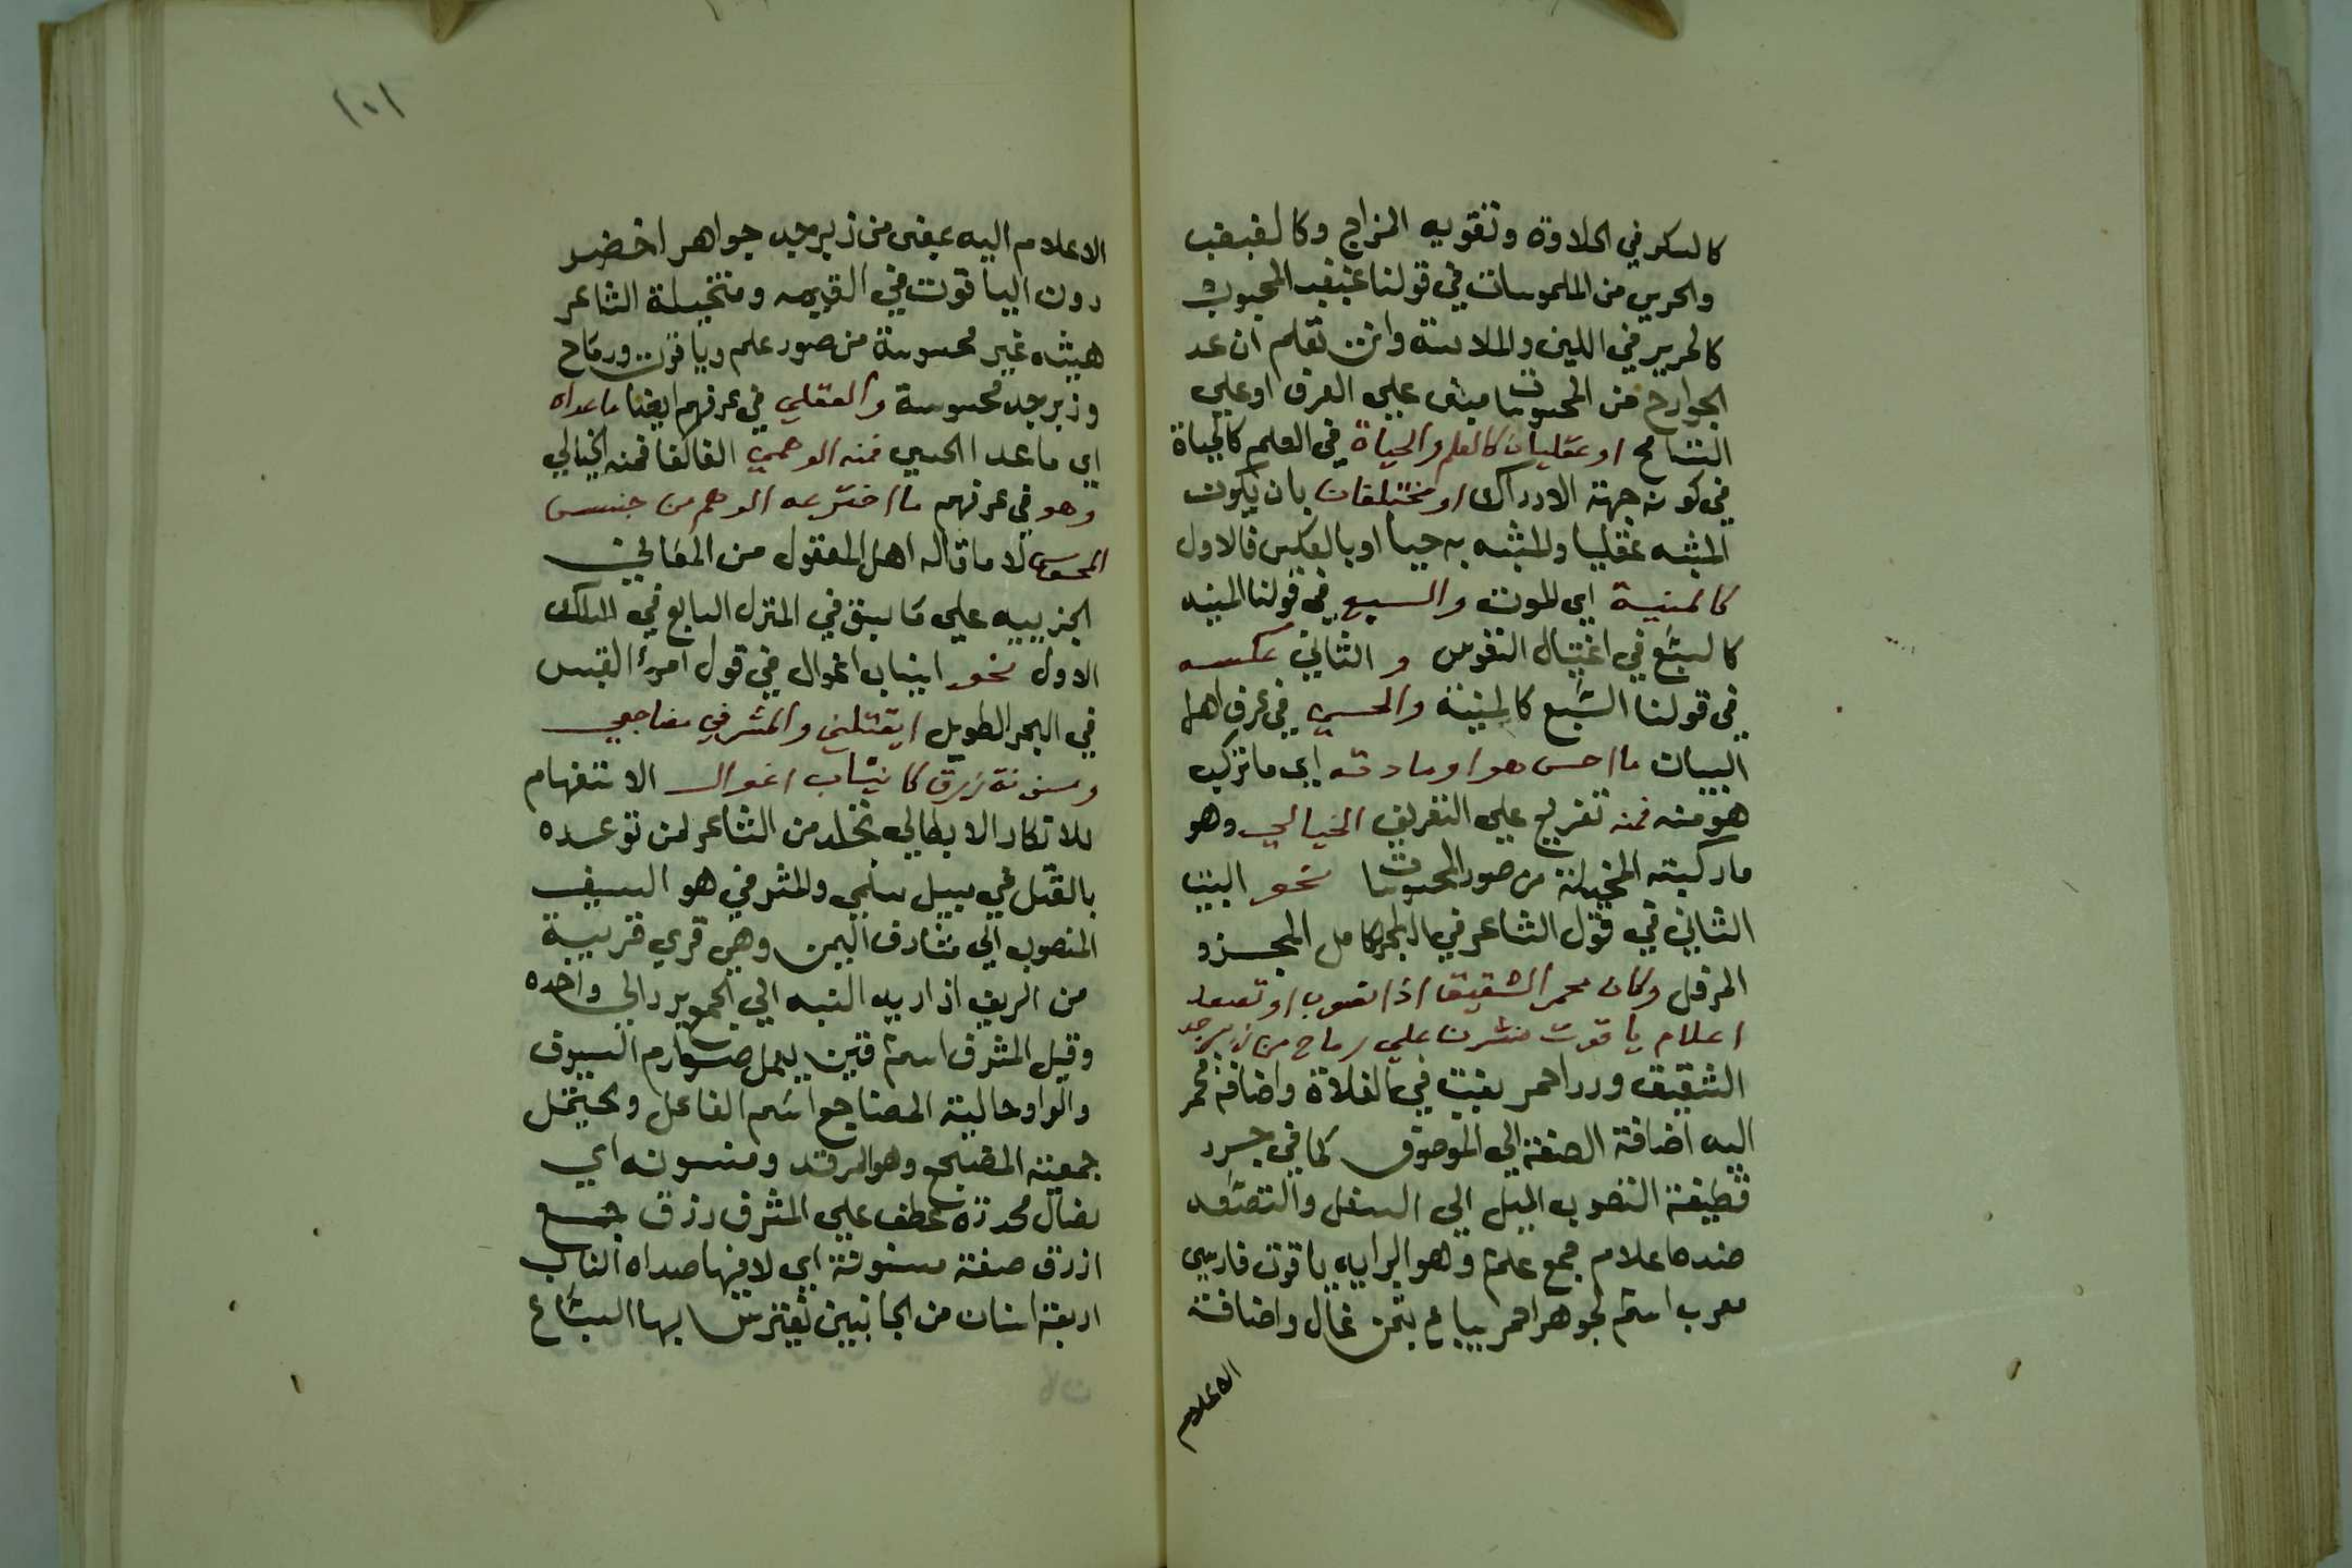 كالسكر في الحلاوة وتقويه المزاج وكالغبغب
والحرير من الملموسات في قولنا غبغب المحبوب
كالحرير في اللين والملاسة وانت تعلم ان عد
الجوارح من المحسوسات مبنى علي العرف او علي
التسامح او عقليان كالعلم والحياة في العلم كالحياة
في كونه جهة الادراك او مختلفان بان يكون
المشبه عقليا والمشبه به حسيا او بالعكس فالاول
كالمنية اي الموت والسبع في قولنا المنيه
كالسبع في اغتيال النفوس والثاني عكسه
في قولنا السبع كالمنية والحسي في عرف اهل
البيان ما احس هو او مادته اي ما تركب
هو منه فمنه تفريع علي التعريف الخيالي وهو
ما ركبته المخيلة من صور المحسوسات نحو البيت
الثاني في قول الشاعر في البحر الكامل المجزو
المرفل وكان محمر الشقيق اذا تصوب او تصعد
اعلام ياقوت نشرن علي رماح من زبرجد
الشقيق ورد احمر ينبت في الفلاة واضافة محمر
اليه اضافة الصفة الي الموصوف كما في جرد
قطيفة التصوب الميل الي السفل والتصعد
ضده اعلام جمع علم وهو الرايه ياقوت فارسي
معرب اسم لجوهر احمر يباع بثمن غال واضافة
الاعلام
١٠١
الاعلام اليه بمعنى من زبرجد جواهر اخضر
دون الياقوت في القيمه ومتخيلة الشاعر
هيئه غير محسوسة من صور علم وياقوت ورماح
وزبرجد محسوسة والعقلي في عرفهم ايضا ما عداه
اي ما عدا الحسي فمنه الوهمي الفا كفا فمنه الخيالي
وهو في عرفهم ما اخترعه الوهم من جنس
المحسوس لا ما قاله اهل المعقول من المعاني
الجزييه علي ما سبق في المنزل السابع في المسلك
الاول نحو انياب اغوال في قول امرء القيس
في البحر الطويل ايقتلني والمشرفي مضاجعي
ومسنونة زرق كانياب اغوال الاستفهام
للانكار الابطالي تجلد من الشاعر لمن توعده
بالقتل في سبيل سلمي والمشرفي هو السيف
المنصوب الي مشارف اليمن وهي قري قريبة
من الريف اذ اريد النسبه الي الجمع يرد الي واحده
وقيل المشرف اسم قين يعمل صوارم السيوف
والواو حالية المضاجع اسم الفاعل ويحتمل
جمعية المضجع وهو المرقد ومسنونه اي
نصال محددة عطف علي المشرف زرق جمع
ازرق صفة مسنونة اي لا فيها صداه الناب
اربعة اسنان من الجانبين تفترس بها السباع